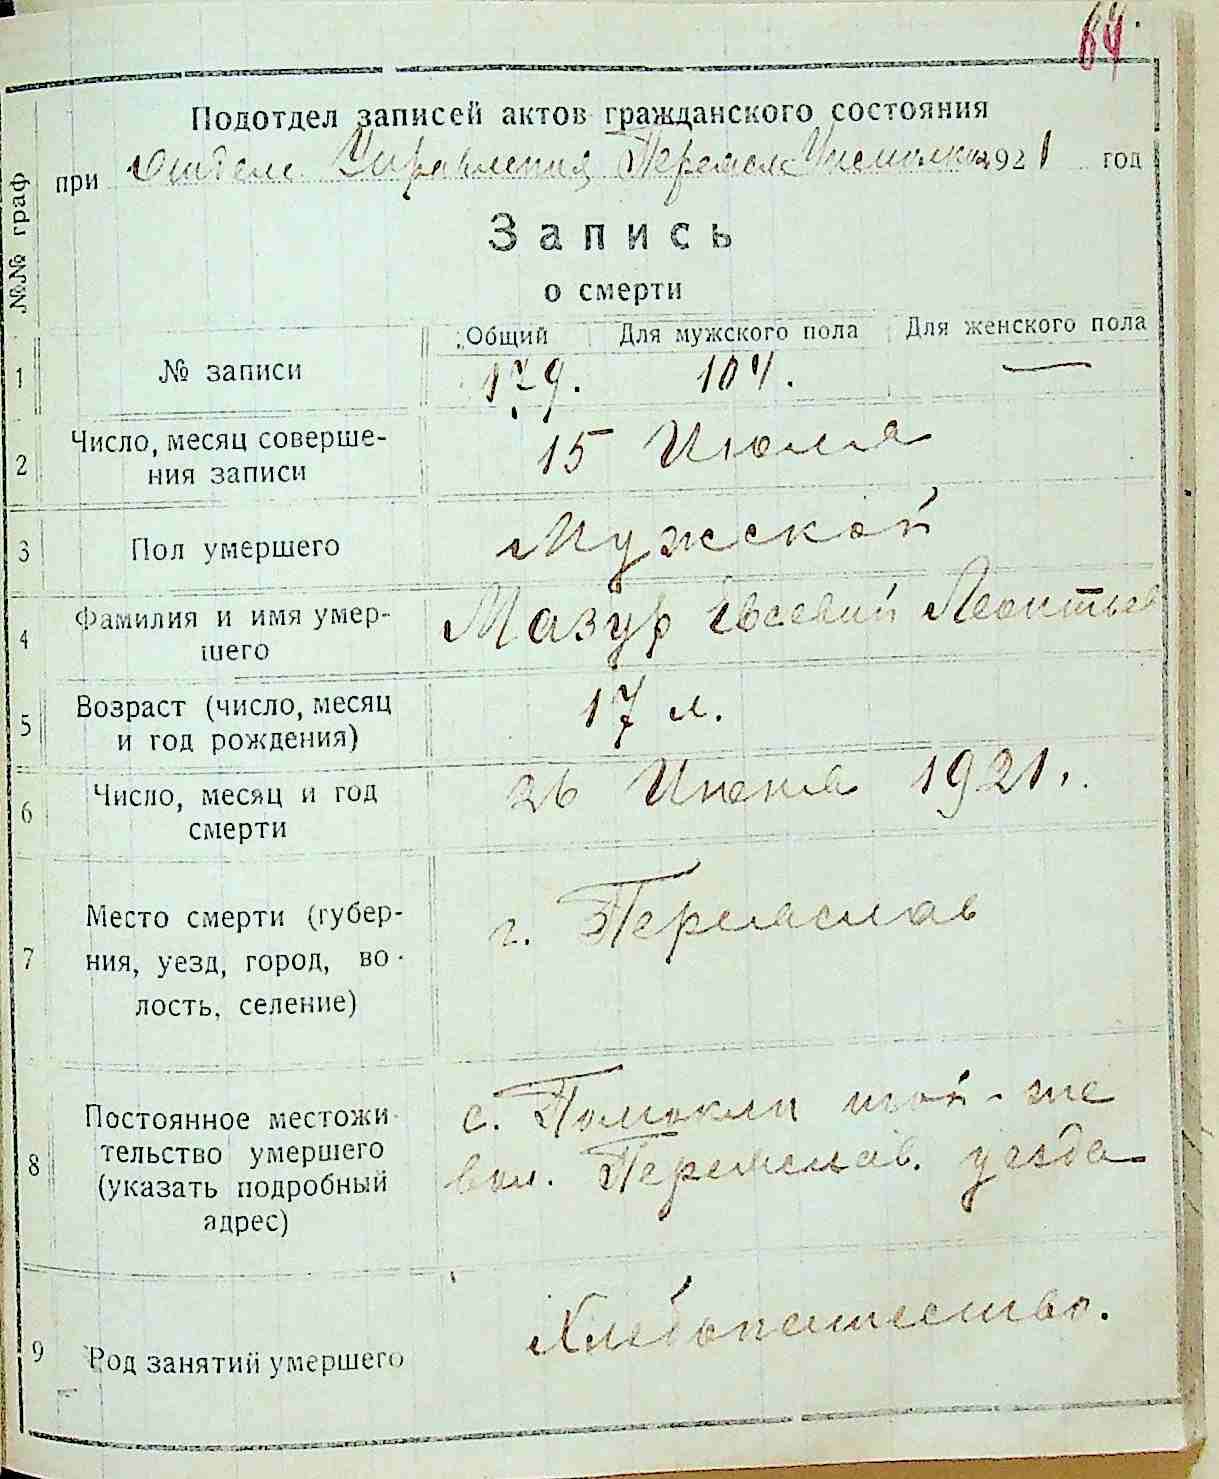 64.
Подотдел записей актов гражданского состояния
при Отделе Управления Переясл Уисполкома 1921 год
№№ граф
Запись
о смерти
Общий Для мужского пола Для женского пола
1 № записи 179. 104. —
2 Число, месяц соверше-
ния записи 15 Июля
3 Пол умершего Мужской
4 Фамилия и имя умер-
шего Мазур Евсевий Леонтьев
5 Возраст (число, месяц
и год рождения) 17 л.
6 Число, месяц и год
смерти 26 Июня 1921.
7 Место смерти (губер-
ния, уезд, город, во-
лость, селение) г. Переяслав
8 Постоянное местожи-
тельство умершего
(указать подробный
адрес) с. Помокли той-же
вол. Переяслав. уезда
9 Род занятий умершего Хлебопашество.